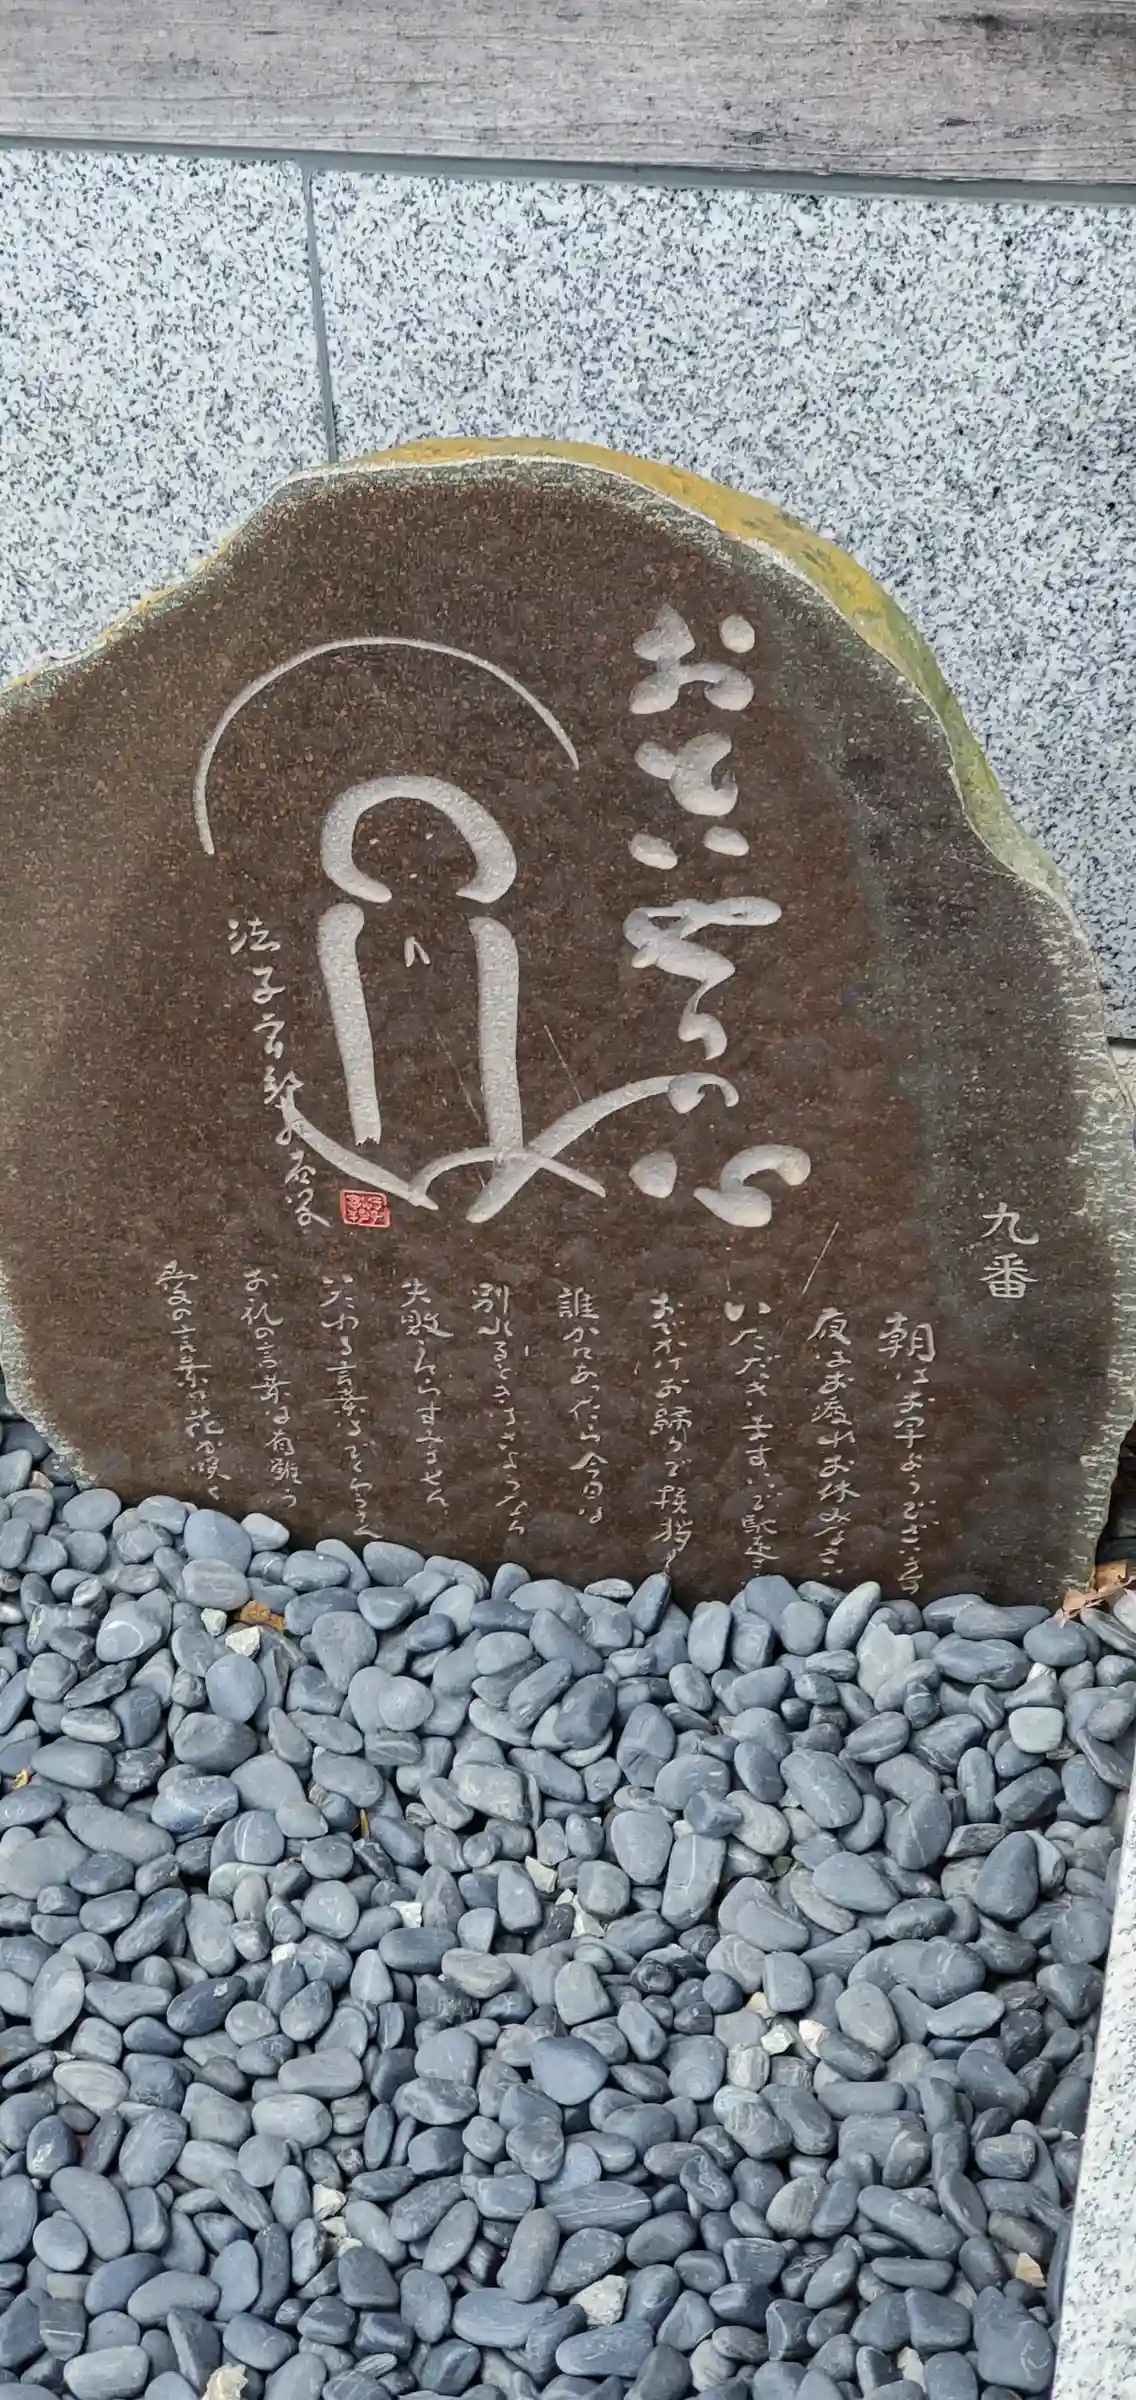 九番
おといせうの心
朝はお早ようございます
夜はお疲れお休みなさい
いただきますいご馳走
おでかけお帰りで挨拶
誰かにあったら今日は
別れるときはさようなら
失敗したらすみません
いたわる言葉は
お礼の言葉は有難う
愛の言葉は花が咲く
法子